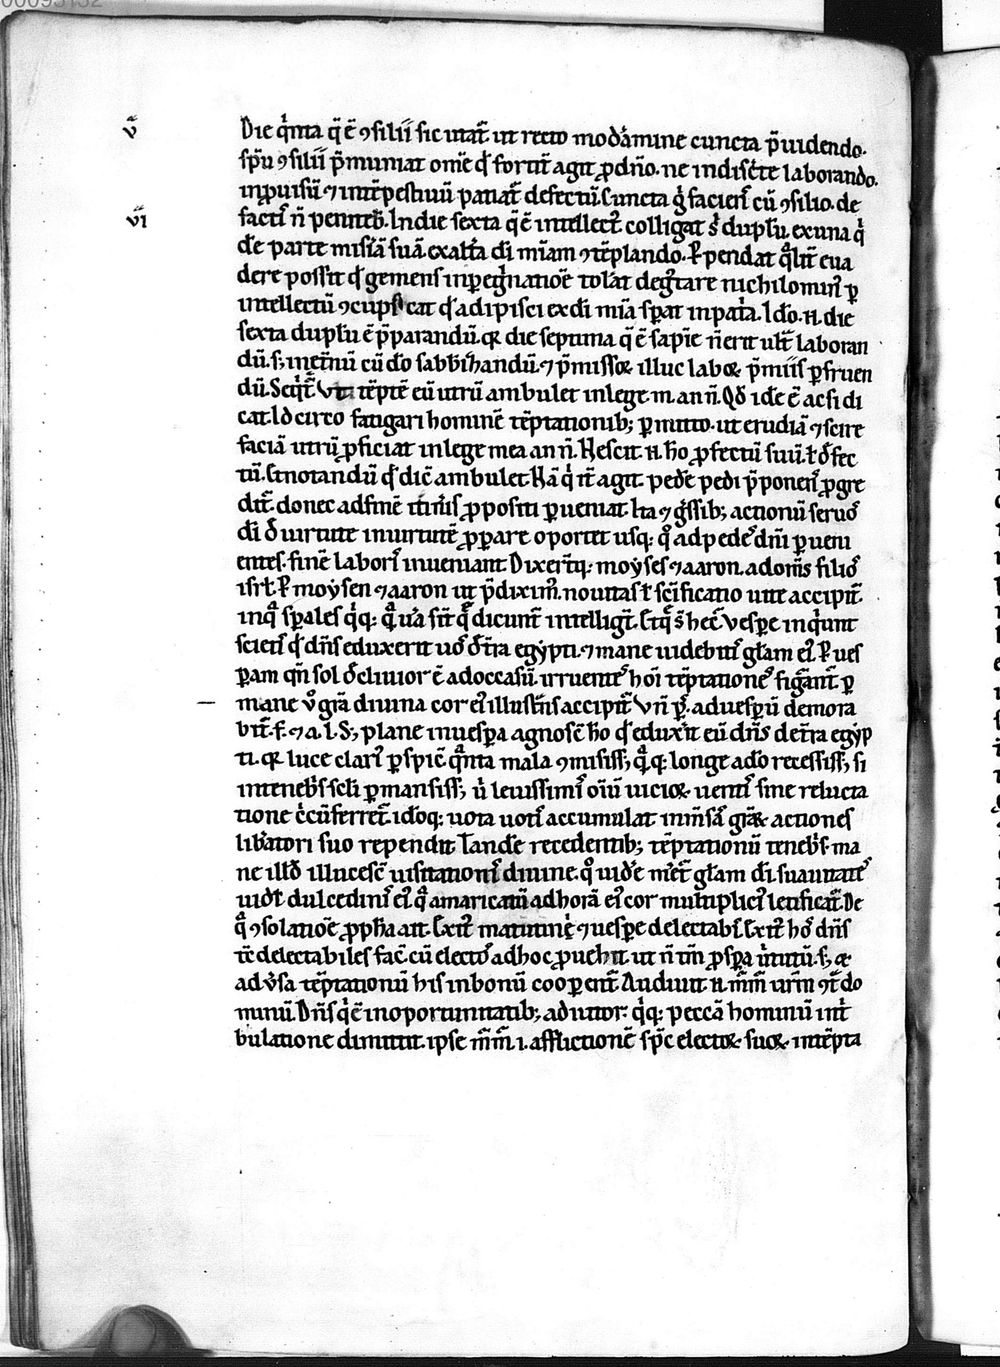 v̄
Die q̇nta q̄ ē ꝯsilii sic utat᷑ ut recto modāmine cuncta p̄uidendo.
spū ꝯsilii p̄muniat om̄e qd fortit᷑ agit ꝓ dn̄o. ne indiscte laborando.
inꝓuisū ⁊ intēpestiuū patiat᷑ defectū. Cuncta g̊ faciens cū ꝯsilio. de
vi
facti n̄ penitebit. In die sexta q̄ ē intellect᷑ colligat duplū. ex una
de parte misiā suā. ex alta di mīam ꝯtēplando. ꝑpendat qlit᷑ eua
dere possit qd gemens in pegnatiōe tolāt degtare nichilomin᷒ ꝑ
intellectū ꝯcupiscat qd adipisci ex di mīa sꝑat in patia. Ido. n. die
sexta duplū ē p̄parandū. qꝛ die septima q̄ ē sapīe n̄ erit ult᷑ laboran
dū. s; inet̄nū cū do sabbīhandū. ⁊ p̄missoꝝ illuc laboꝝ p̄miis ꝑfruen
dū. Seqt᷑ Vt tēptē eū utrū ambulet in lege m. an n̄. Qd idē ē acsi di
cat. Idcirco fatigari hominē tēptationib; ꝑmitto. ut erudiā ⁊ scire
faciā utrū ꝓficiat in lege mea an n̄. Nescit n̄ ho ꝓfectū suū ł dfec
tū. Et notandū qd dic᷑ ambulet Nā q̇ it᷑ agit pedē pedi p̄ponens ꝓgre
dit᷑ donec ad finē itineris ꝓpositi ꝑueniat. Ita ⁊ gssib; actionū seruos
di d uirtute in uirtutē ꝓꝑare oportet usq; q̊ ad pedes dn̄i ꝑueni
entes. finē laboris inueniant Dixertq; moyses ⁊ aaron. ad omīs filios
isrł. ꝑ moysen ⁊ aaron ut p̄diximus nouitas ł scificatio uite accipit᷑.
in qͣ spales q̇q; qͣ uera sit q̄ dicunt intelligt᷑. Et q̄ s̄ hec Vespe inq̇unt
scietis qd dn̄s eduxerit uos d tra egypti. ⁊ mane uidebitis głam ei᷒. ꝑ ues
ꝑam qn̄ sol decliuior ē ad occasū. irruentes hoi tēptationes figāt᷑. ꝑ
mane v̊ grā diuina cor ei᷒ illustrās accipit᷑ Vn̄ p̄ᵃ. ad uesꝑū demora
bit᷑. f. ⁊ a. l. S; plane in uesꝑa agnosc̄ ho qd eduxit eū dn̄s de tra egyp
ti. qꝛ luce clari᷒ ꝑspic̄ q̄nta mala ꝯmisiss; q̇q; longe a do recessiss; si
in tenebris scli ꝑmansiss; u᷑ leuissimus oīū uicioꝝ uentus sine relucta
tione c̄cūferret᷑. idoq; uota uotis accumulat īmsā grāꝝ actiones
libatori suo rependit Tandē recedentib; tēptationū tenebris. ma
ne illd illucesc̄ uisitationis diuine. q̊ uide meret᷑ głam di. suauitates
uidt dulcedinis ei᷒. qͣ amaricatū ad horā ei᷒ cor multiplicit᷑ letificat᷑. De
qͣ ꝯsolatiōe ꝓpha ait. Exit᷒ matutini ⁊ uespe delectabis. Exit᷒ hos dn̄s
tc̄ delectabiles fac᷑ cū electos adhoc ꝓuehit. ut n̄ tm̄ ꝓsꝑa uirtutū. s; ⁊
adūsa tēptationū his in bonū cooꝑent᷑ Audiuit n̄. m̄m̄ ur̄m ꝯt᷑ do
minū. Dn̄s q̇ ē in oportunitatib; adiutor. q̇q; peccā hominū in t
bulatione dimittit. ipse m̄m̄. i. afflictionē spc̄ electoꝝ suoꝝ intēpta